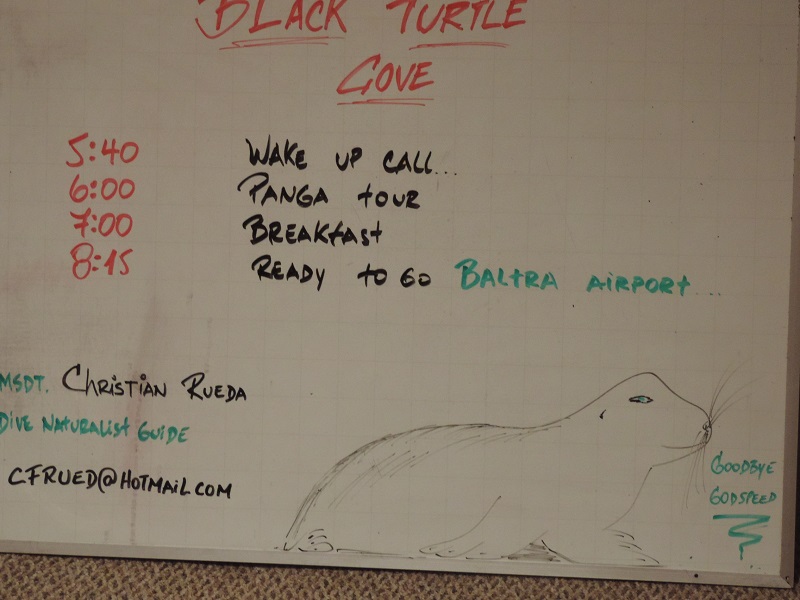 BLACK TURTLE
COVE
5:40 WAKE UP CALL...
6:00 PANGA tOUR
7:00 BREAKfast
8:15 READY to GO BALtRA AiRPORt...
MSDT. CHRiStIAN RUEDA
DiVE NAtURALISt GUiDE
CFRUED@HOTMAiL.COM
GOODBYE
GODSPEED